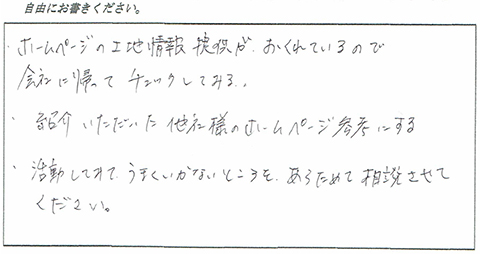 自由にお書きください。
・ホームページの土地情報提供が、おくれているので
会社に帰って チェックしてみる。
・紹介いただいた他社様のホームページ参考にする
・活動してみて、うまくいかないところを、あらためて相談させて
ください。